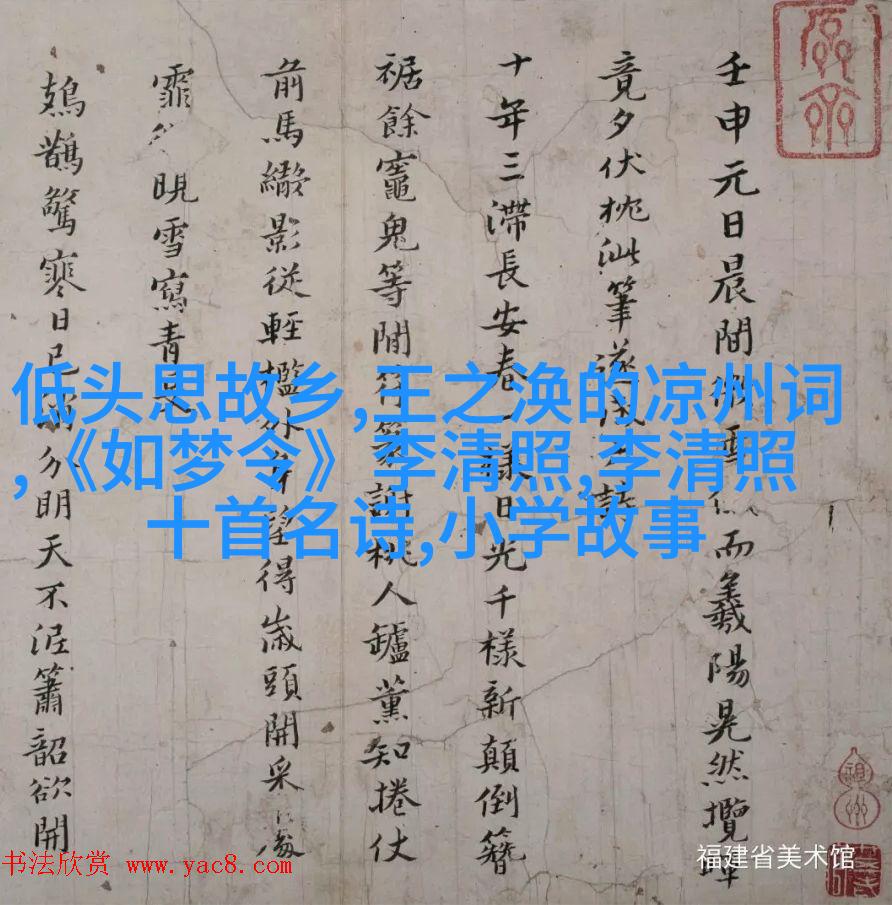 壬申元日晨間雪而羲陽晃然攬
竟夕伏枕泚筆遂
十年三滯長安春一樣日光千樣新顛倒簪
裾餘竈鬼等閒符謝桃人鑪薰知捲仗
前馬影從輕檻外望得歲頭開采
霏晛雪寫青
鳷鵲驚寒日已分明天不泥簫韶欲開
低头思故乡,王之涣的凉州词
,《如梦令》李清照,李清照
十首名诗,小学故事
书法欣赏 www.yac8.com
福建省美术馆